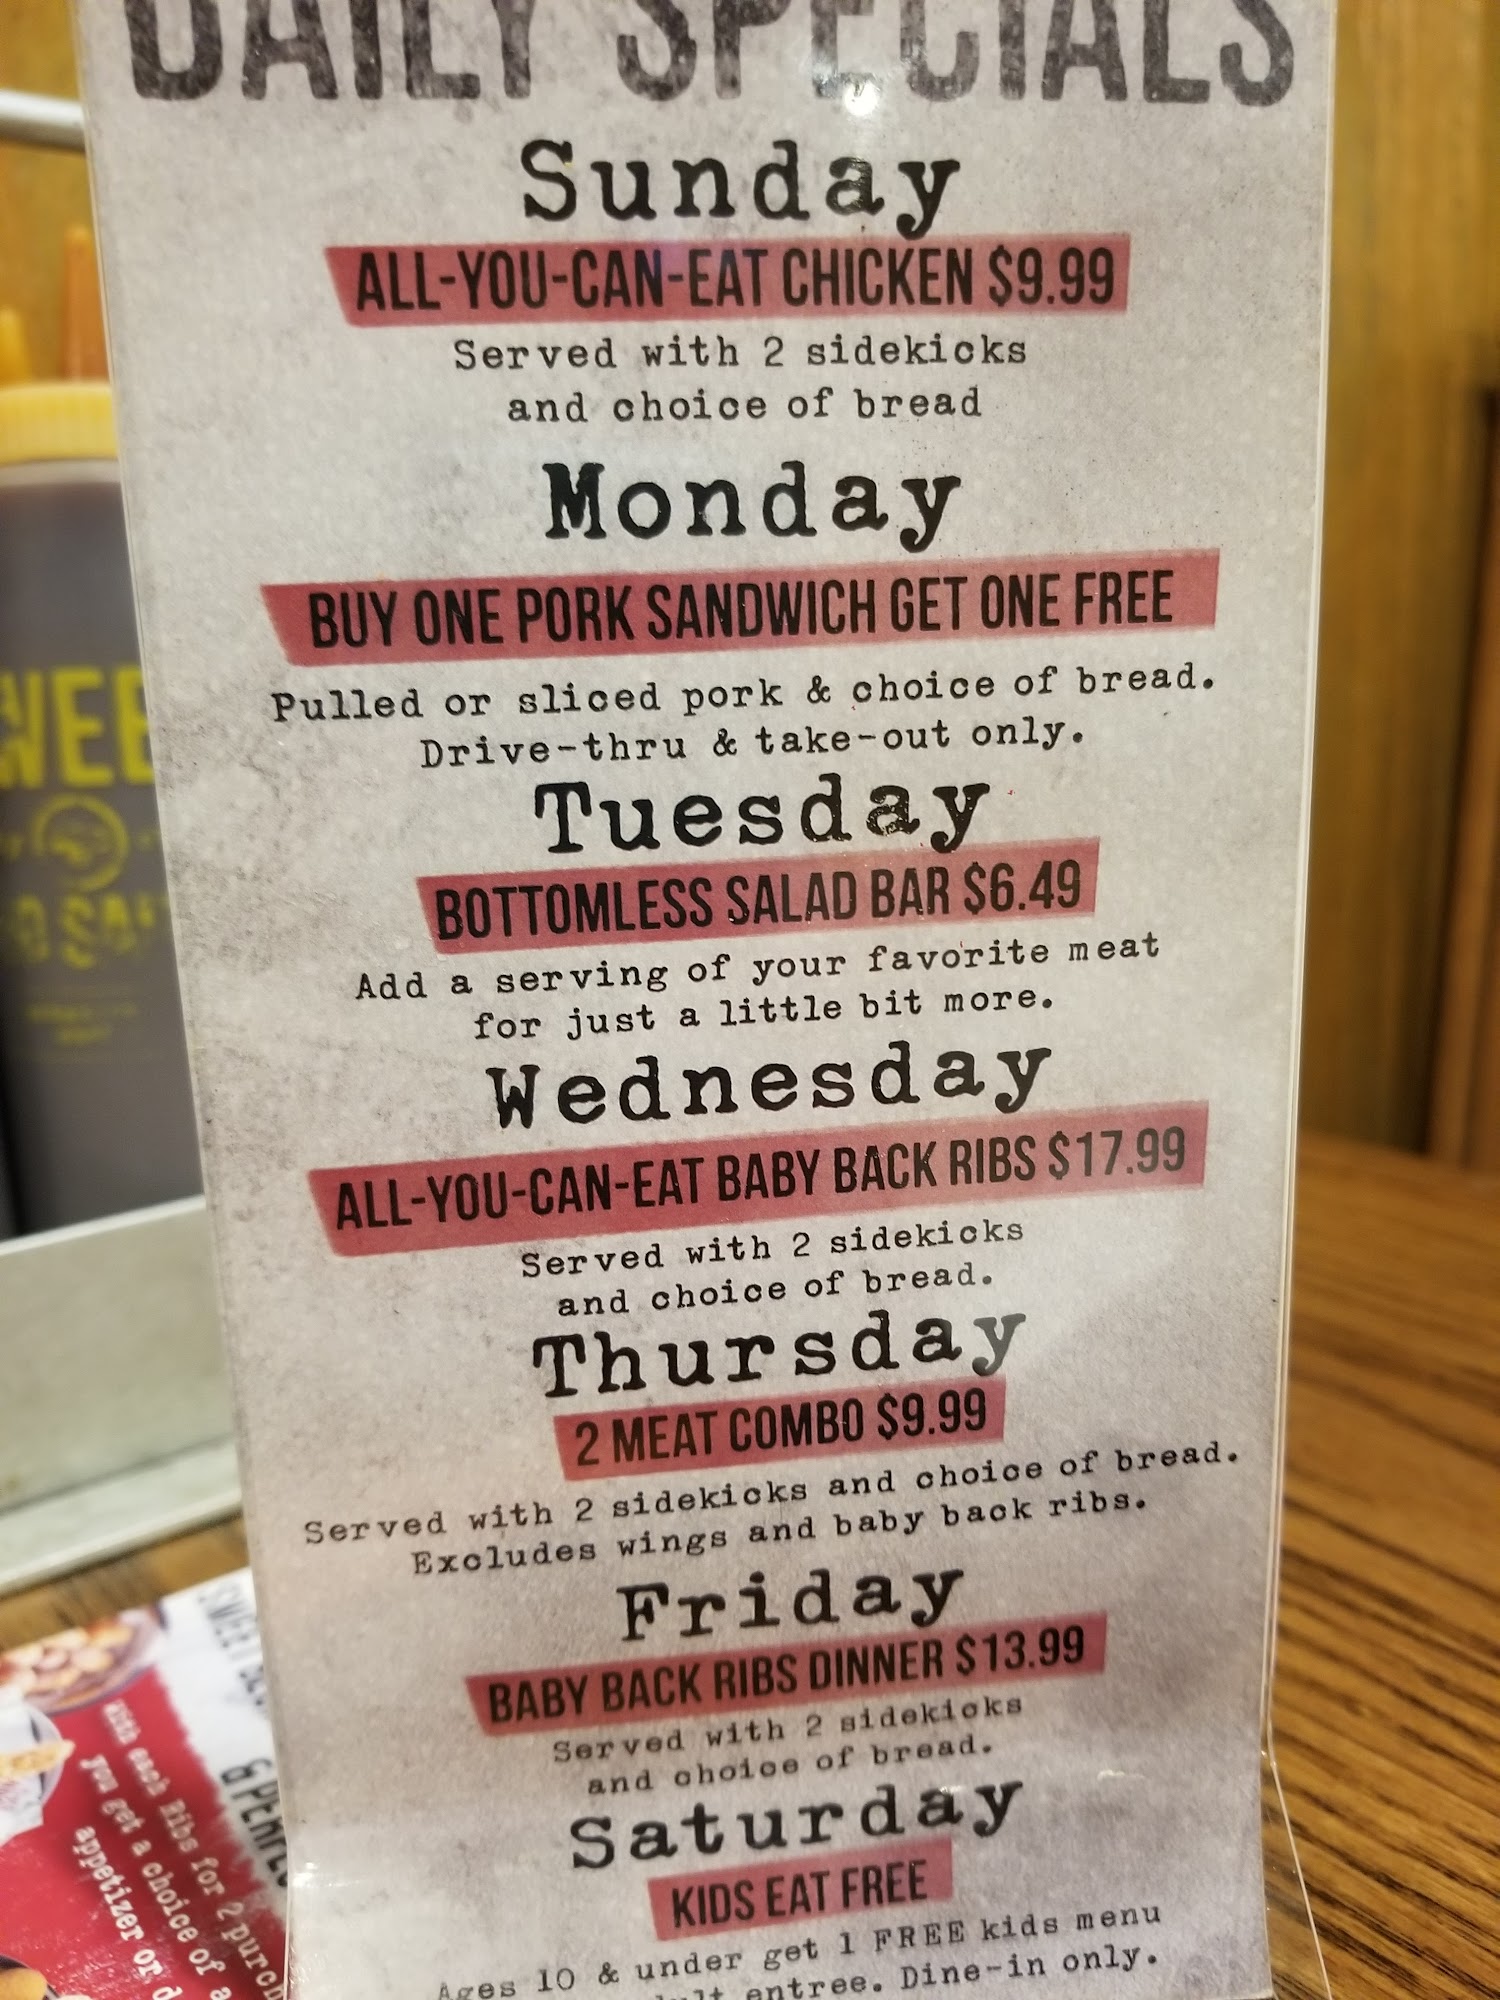 DAILY SPECIALS
Sunday
ALL-YOU-CAN-EAT CHICKEN $9.99
Served with 2 sidekicks
and choice of bread
Monday
BUY ONE PORK SANDWICH GET ONE FREE
Pulled or sliced pork & choice of bread.
Drive-thru & take-out only.
Tuesday
BOTTOMLESS SALAD BAR $6.49
Add a serving of your favorite meat
for just a little bit more.
Wednesday
ALL-YOU-CAN-EAT BABY BACK RIBS $17.99
Served with 2 sidekicks
and choice of bread.
Thursday
2 MEAT COMBO $9.99
Served with 2 sidekicks and choice of bread.
Excludes wings and baby back ribs.
Friday
BABY BACK RIBS DINNER $13.99
Served with 2 sidekicks
and choice of bread.
Saturday
KIDS EAT FREE
Ages 10 & under get 1 FREE kids menu
entree. Dine-in only.
with each Ribs for 2
you get a choice of
appetizer or